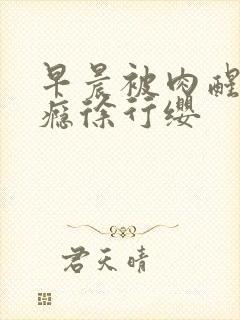 早晨被肉醒
瘾徐行缨
君天晴